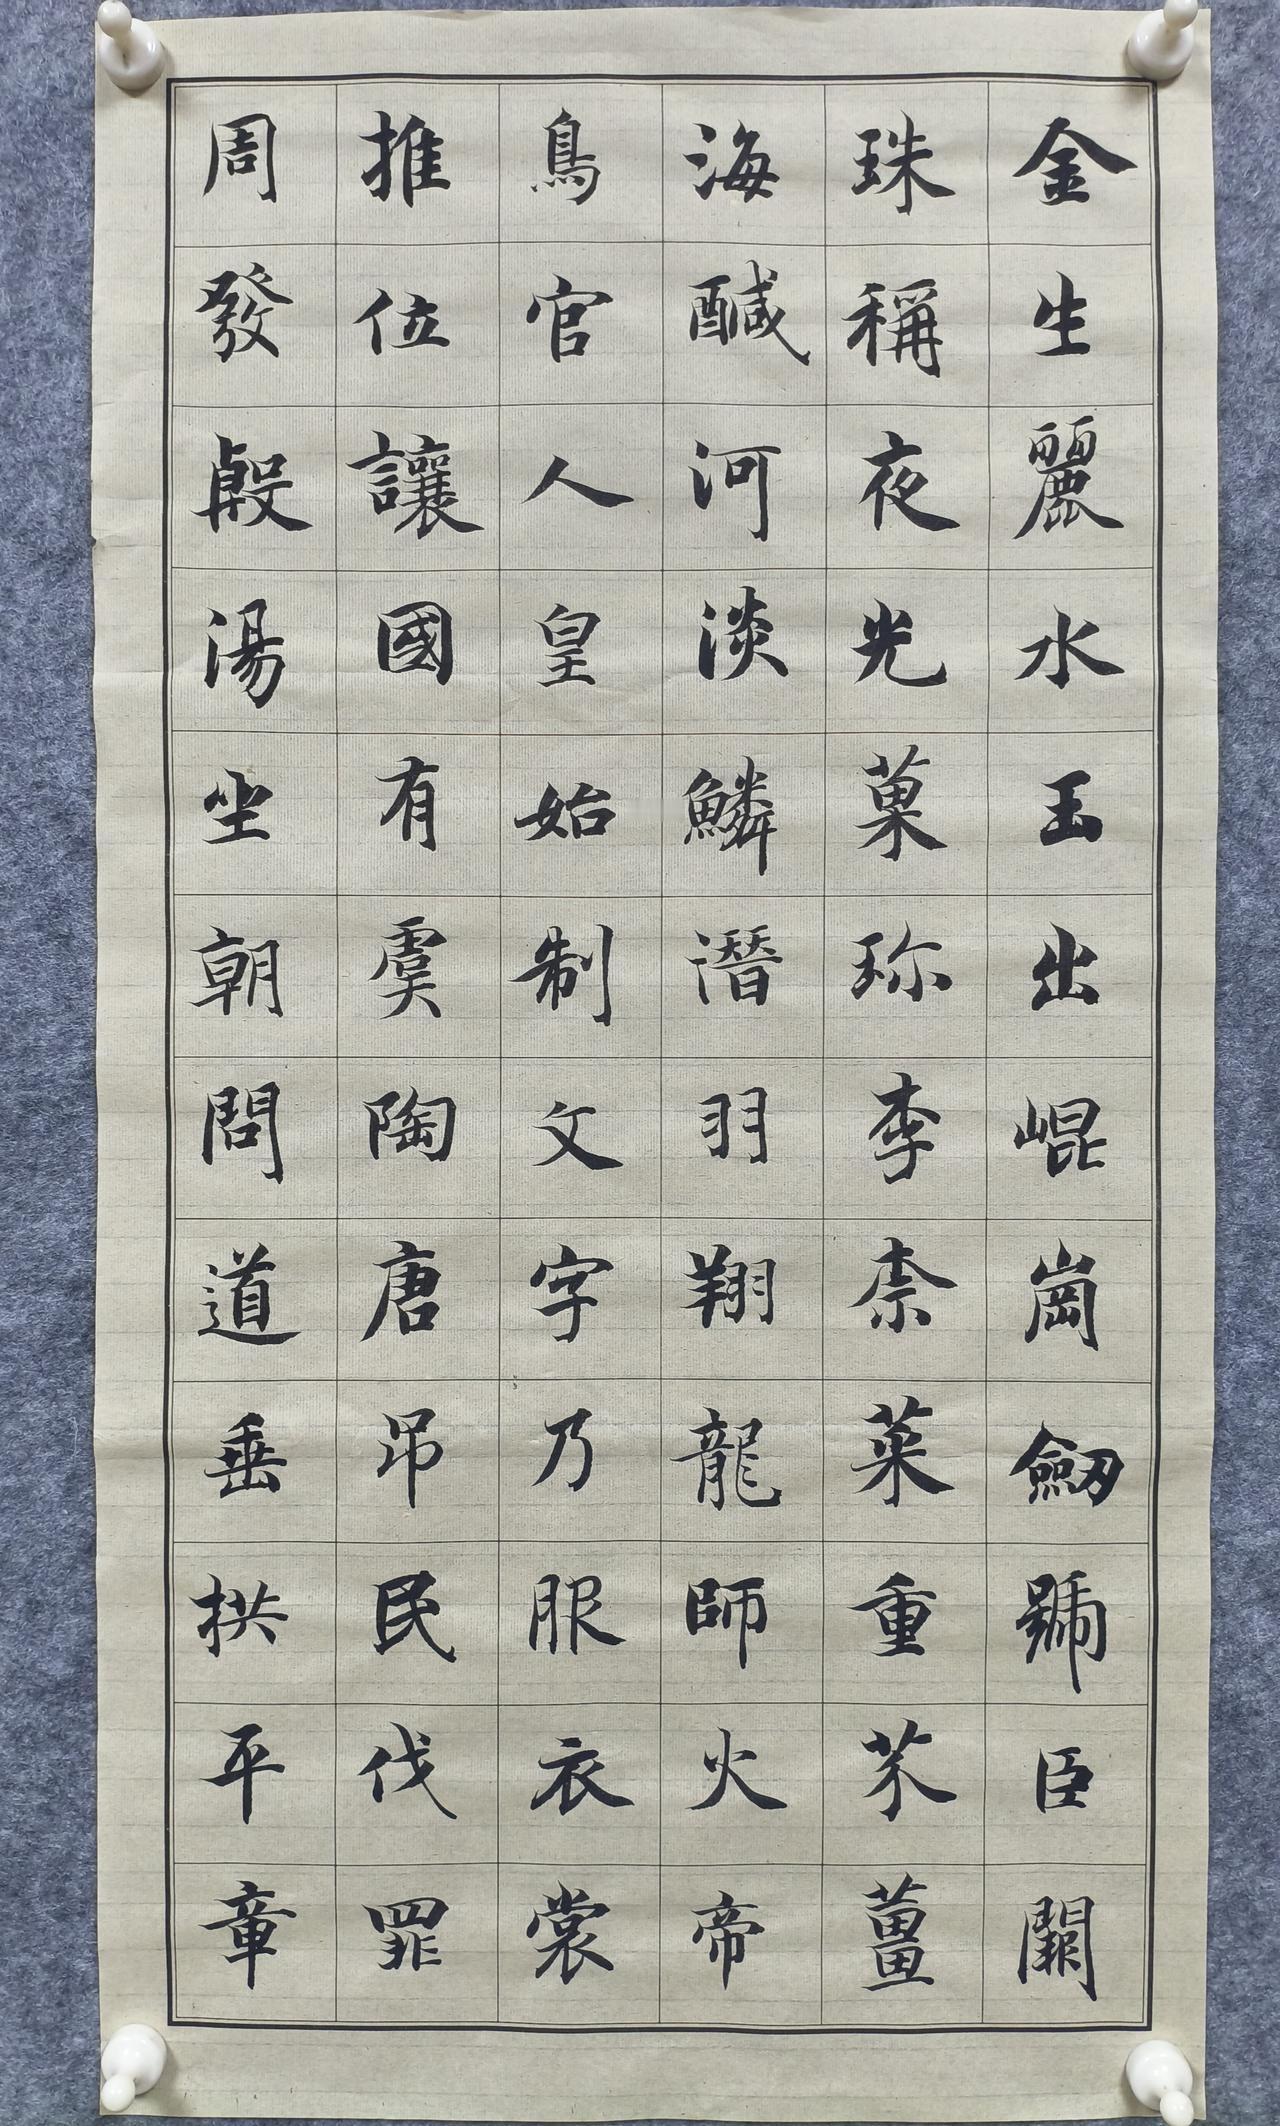 金生麗水玉出崐崗劒號臣闕
珠稱夜光菓珎李柰菜重芥薑
海醎河淡鱗潛羽翔龍師火帝
鳥官人皇始制文字乃服衣裳
推位讓國有虞陶唐吊民伐罪
周發殷湯坐朝問道垂拱平章